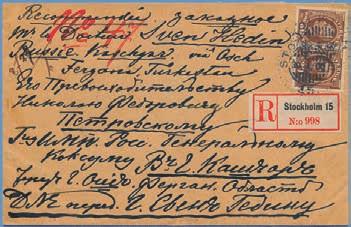 Recommandé. заказное
Mr le Docteur Sven Hedin
Russie Kaschgar via Osch
Fergana Turkestan
Его Превосходительству
Николаю Федоровичу
Петровскому
Росс. Генеральному
Консулу В г. Кашгаръ
г. Ошъ, Ферган. Области
Для перед. Г. Свену Гедину
R
Stockholm 15
No 998